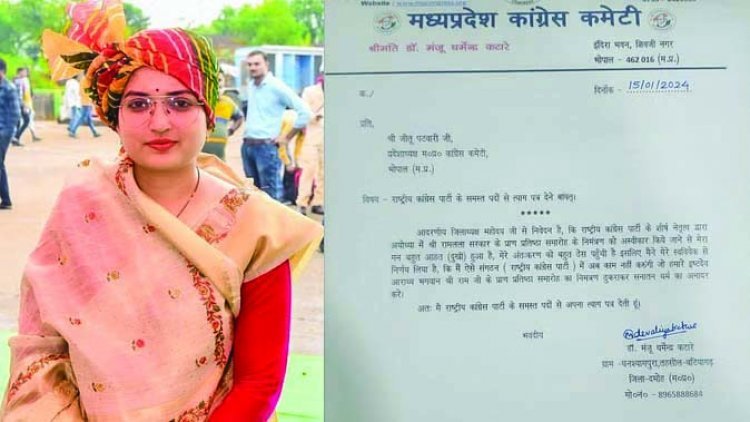 Website
मध्यप्रदेश कांग्रेस कमेटी
श्रीमति डॉ. मंजू धर्मेन्द्र कटारे
इंदिरा भवन, शिवाजी नगर
भोपाल - 462 016 (म.प्र.)
क्र./
दिनांक - 15/01/2024
प्रति,
श्री जीतू पटवारी जी,
प्रदेशाध्यक्ष म०प्र० कांग्रेस कमेटी,
भोपाल (म.प्र.)
विषय - राष्ट्रीय कांग्रेस पार्टी के समस्त पदों से त्याग पत्र देने बावत्।
*****
आदरणीय जिलाध्यक्ष महोदय जी से निवेदन है, कि राष्ट्रीय कांग्रेस पार्टी के शीर्ष नेतृत्व द्वारा
अयोध्या में श्री रामलला सरकार के प्राण प्रतिष्ठा समारोह के निमंत्रण को अस्वीकार किये जाने से मेरा
मन बहुत आहत (दुखी) हुआ है, मेरे अंतःकरण को बहुत ठेस पहुँची है इसलिए मैंने मेरे स्वविवेक से
निर्णय लिया है, कि मैं ऐसे संगठन ( राष्ट्रीय कांग्रेस पार्टी ) में अब काम नहीं करूंगी जो हमारे इष्टदेव
आराध्य भगवान श्री राम जी के प्राण प्रतिष्ठा समारोह का निमंत्रण ठुकराकर सनातन धर्म का अनादर
करे।
अतः मैं राष्ट्रीय कांग्रेस पार्टी के समस्त पदों से अपना त्याग पत्र देती हूं।
भवदीय
डॉ. मंजू धर्मेन्द्र कटारे
ग्राम -घनश्यामपुरा,तहसील-बटियागढ़
जिला-दमोह (म०प्र०)
मो०नं० - 8965888684